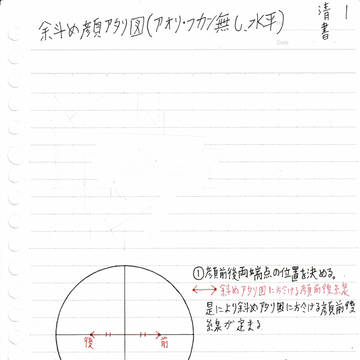 余斜め顔アタリ図(アオリ・フカン無し、水平)
清書 1
Date
①顔前後両端点の位置を決める。
↔斜めアタリ図における顔前後線
是により余斜めアタリ図における顔前後
線が定まる
後 前